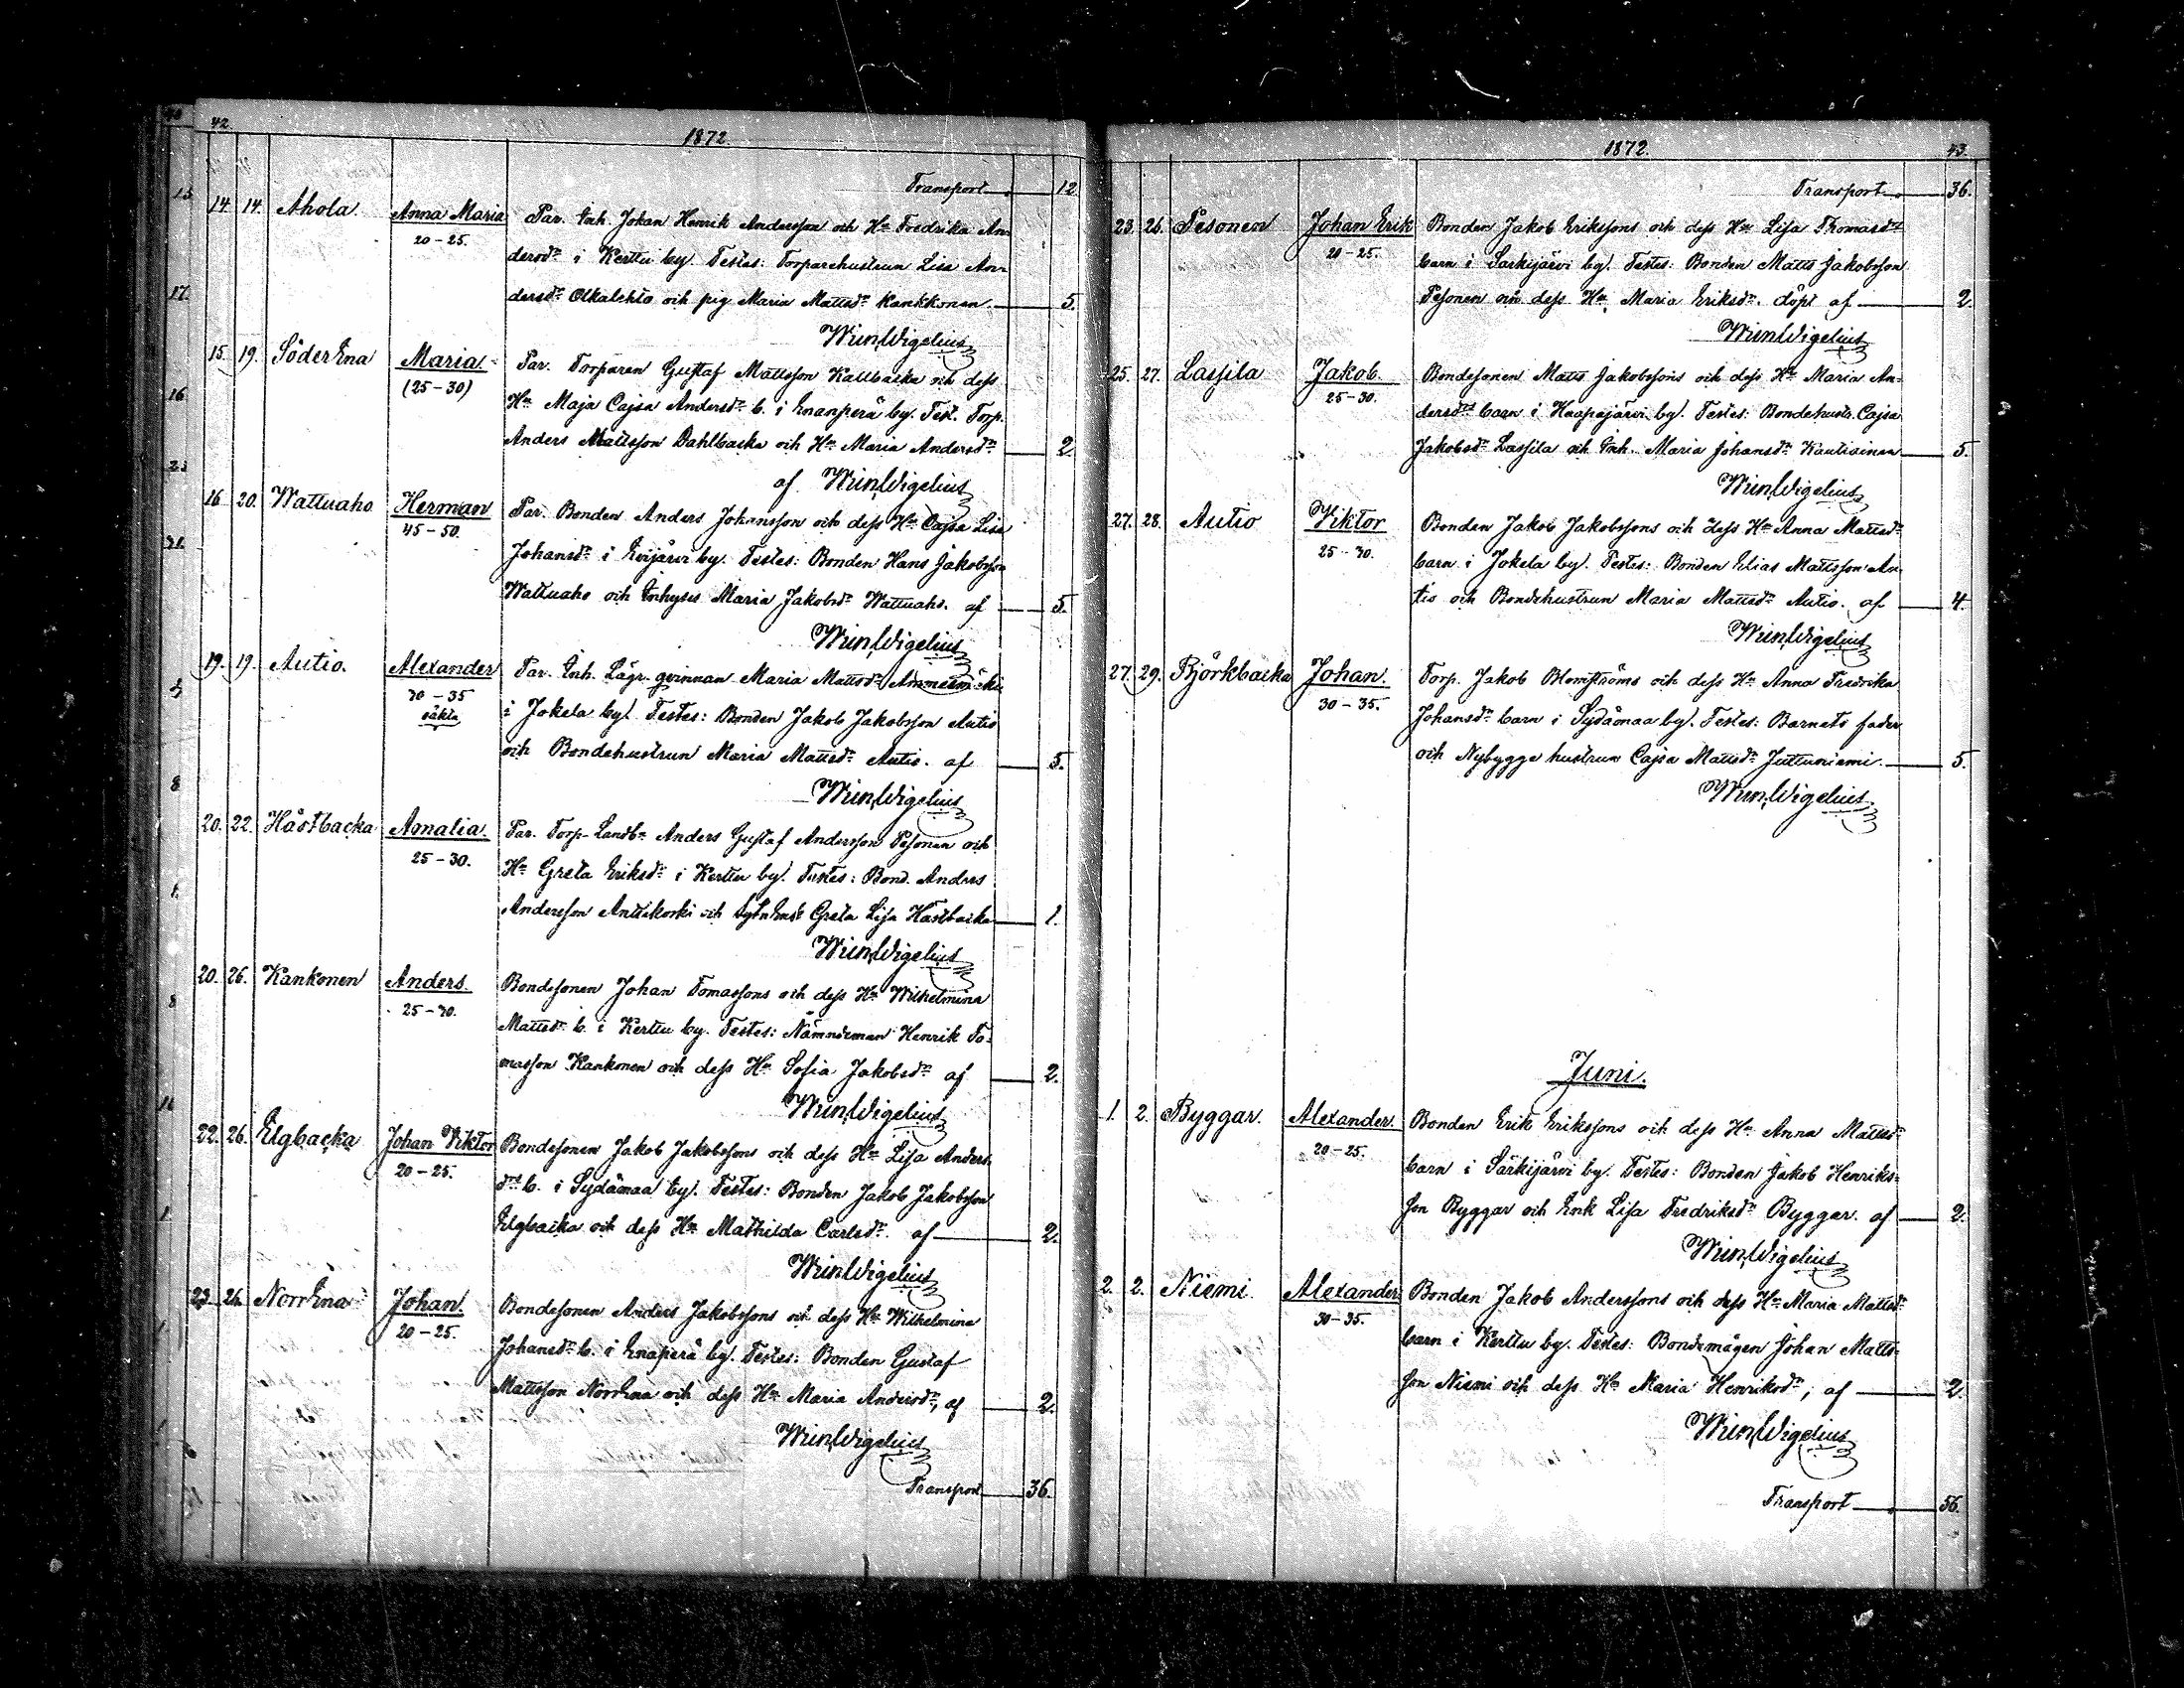 42.
1872.
Transport 12
14. 14. Ahola. Anna Maria Par. Inh. Johan Henrik Andersson och Hu Fredrika An-
20-25. dersdr i Kerttu by. Testes: Torparehustrun Lisa An-
dersdr och pig. Maria Mattsdr Kankkonen. 5.
WilnWigelius
15. 19. SöderEna Maria. Par. Torparen Gustaf Mattsson Kallbacka och dess
(25-30) Hu Maja Cajsa Andersdr b. i Enanperä by. Test. Torp.
Anders Mattsson Dahlbacka och Hu Maria Andersdr 2
af WilnWigelius
16 20. Wattuaho Herman Par. Bonden Anders Johansson och dess Hu Cajsa Lisa
45-50. Johansdr i Evijärvi by. Testes: Bonden Hans Jakobsson
Wattuaho och Inhyses Maria Jakobsdr Wattuaho. af 5.
WilnWigelius
19. 19. Autio. Alexander Par. Inh. Lägr. qvinnan Maria Mattsdr
30-35 i Jokela by. Testes: Bonden Jakob Jakobsson Autio
oäkta
och Bondehustrun Maria Mattsdr Autio. af 5.
WilnWigelius
20. 22. Håstbacka Amalia. Par. Torp. Landb. Anders Gustaf Andersson Pesonen och
25-30. Hu Greta Eriksdr i Kerttu by. Testes: Bond. Anders
Andersson Antikoski och Greta Lisa Hastbacka 1.
WilnWigelius
20. 26. Kankonen Anders. Bondesonen Johan Tomassons och dess Hu Wilhelmina
25-30. Mattsdr b. i Kerttu by. Testes: Nämndeman Henrik To-
masson Kankonen och dess Hu Sofia Jakobsdr af 2.
WilnWigelius
22. 26. Elgbacka Johan Viktor Bondesonen Jakob Jakobssons och dess Hu Lisa Anders-
20-25. dr b. i Sydänmaa by. Testes: Bonden Jakob Jakobsson
Elgbacka och dess Hu Mathilda Carlsdr. af 2.
WilnWigelius
23. 26. NorrEna Johan. Bondesonen Anders Jakobssons och dess Hu Wilhelmina
20-25. Johansdr b. i Enaperä by. Testes: Bonden Gustaf
Mattsson NorrEna och dess Hu Maria Andersdr, af 2.
WilnWigelius
Transport 36.
1872. 43.
Transport 36.
23. 26. Pesonen Johan Erik Bonden Jakob Erikssons och dess Hu Lisa Thomasdr
20-25. barn i Särkijärvi by. Testes: Bonden Matts Jakobsson
Pesonen och dess Hu Maria Eriksdr. döpt af 2.
WilnWigelius
25. 27. Lassila Jakob. Bondesonen Matts Jakobssons och dess Hu Maria An-
25-30. dersdrs barn i Haapajärvi by. Testes: Bondehustr. Cajsa
Jakobsdr Lassila och Inh. Maria Johansdr Kautiainen 5.
WilnWigelius
27. 28. Autio Viktor Bonden Jakob Jakobssons och dess Hu Anna Mattsdr
25-30. barn i Jokela by. Testes: Bonden Elias Mattsson Au-
tio och Bondehustrun Maria Mattsdr Autio. af 4.
WilnWigelius
27. 29. Björkbacka Johan. Torp. Jakob Blomströms och dess Hu Anna Fredrika
30-35. Johansdr barn i Sydänmaa by. Testes: Barnets fader
och Nybygge hustrun Cajsa Mattsdr Juttuniemi. 5.
WilnWigelius
Juni.
1. 2. Byggar. Alexander. Bonden Erik Erikssons och dess Hu Anna Mattsdr
20-25. barn i Särkijärvi by. Testes: Bonden Jakob Henriks-
son Byggar och Enk. Lisa Fredriksdr Byggar. af 2.
WilnWigelius
2. 2. Niemi. Alexander Bonden Jakob Anderssons och dess Hu Maria Mattsdr
30-35. barn i Kerttu by. Testes: Bondemågen Johan Matts-
son Niemi och dess Hu Maria Henriksdr, af 2.
WilnWigelius
Transport 56.